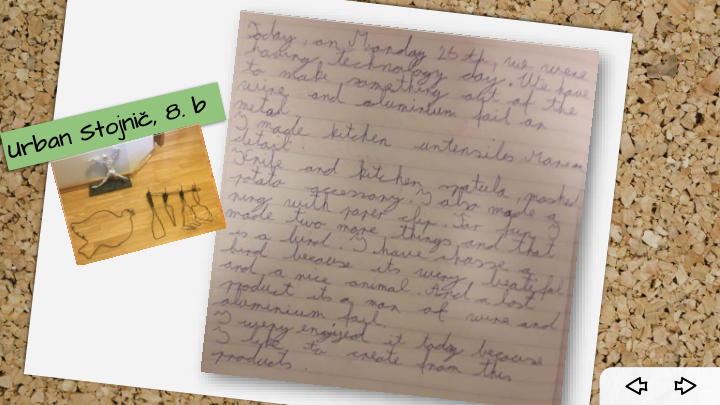 Urban Stojnič, 8. b
Today, on Monday 25 th, we were
having technology day. We have
to make something out of the
wire and aluminium foil an
metal
I made kitchen untensiles
detail.
Knife and kitchen spatula, mashed
potato accessory. I also made a
ring with paper clip. For fun I
made two more things and that
is a bird. I have choose a
bird because its wery beatiful
and a nice animal. And a last
product its a man of wire and
aluminium foil.
I wery enjoyed it today because
I like to create from this
products.